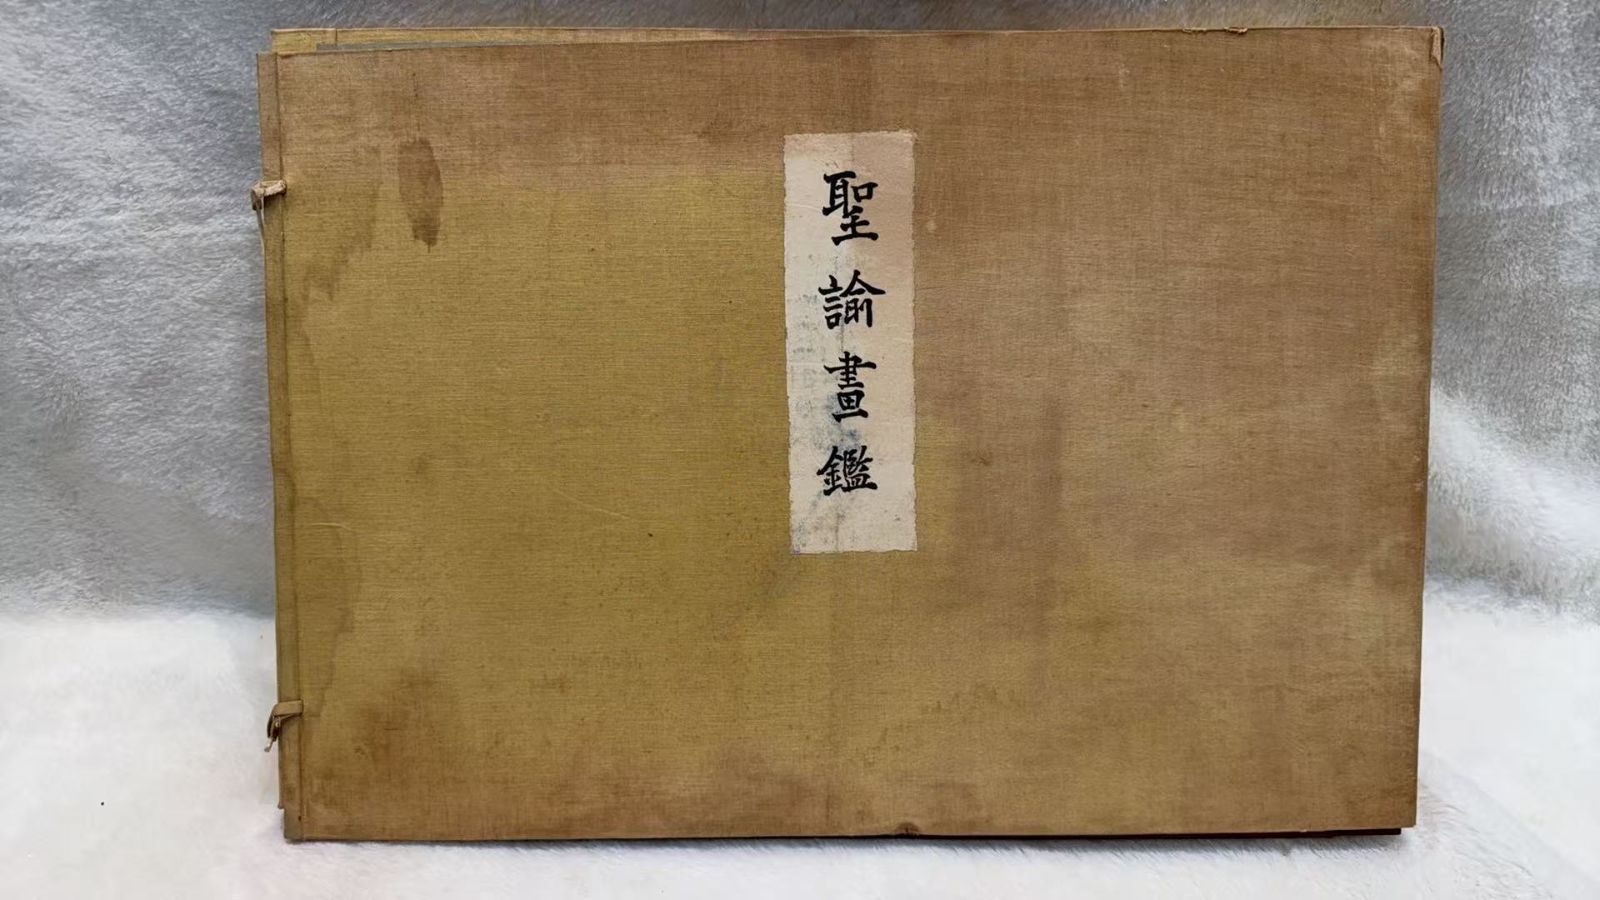 聖諭畫鑑